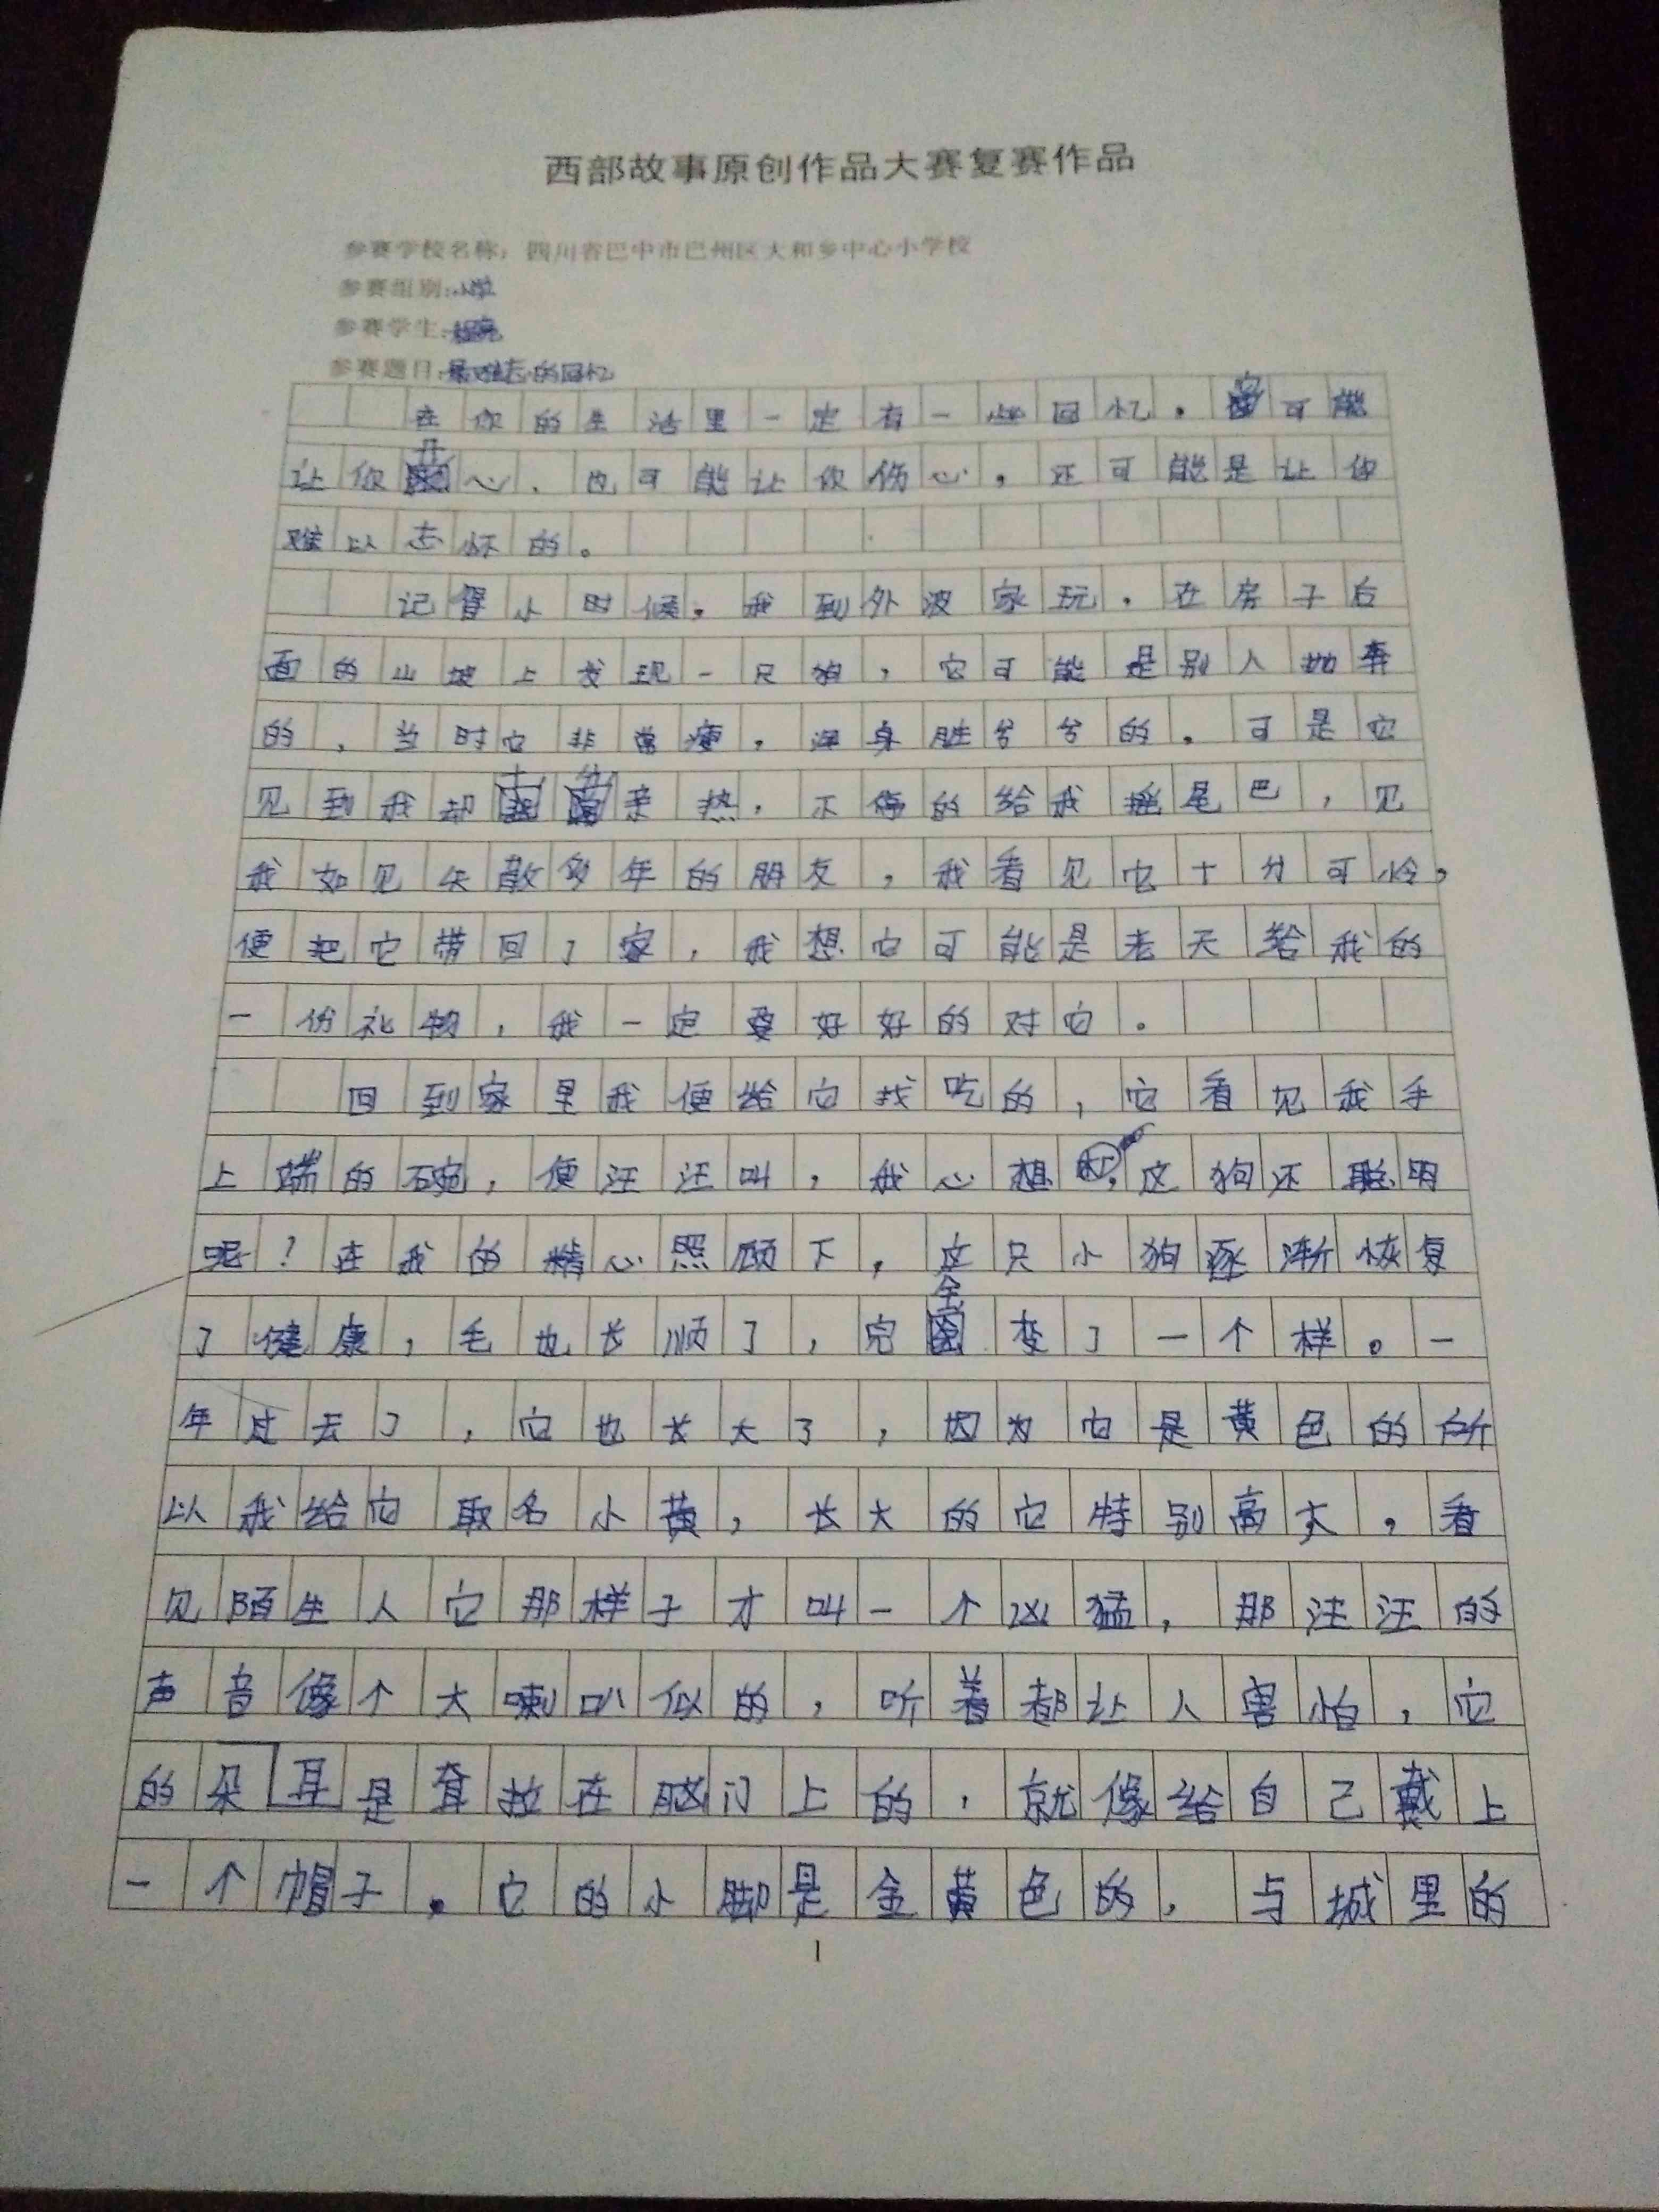 西部故事原创作品大赛复赛作品
参赛学校名称：四川省巴中市巴州区大和乡中心小学校
参赛组别：小学
参赛学生：
参赛题目：最难忘的回忆
在你的生活里一定有一些回忆，它可能
让你开心，也可能让你伤心，还可能是让你
难以忘怀的。
记得小时候，我到外波家玩，在房子后
面的山坡上发现一只狗，它可能是别人抛弃
的，当时它非常瘦，浑身脏兮兮的。可是它
见到我却十分亲热，不停的给我摇尾巴，见
我如见失散多年的朋友，我看见它十分可怜，
便把它带回了家，我想它可能是老天给我的
一份礼物，我一定要好好的对它。
回到家里我便给它找吃的，它看见我手
上端的碗，便汪汪叫，我心想，这狗还聪明
呢？在我的精心照顾下，这只小狗逐渐恢复
了健康，毛也长顺了，完全变了一个样。一
年过去了，它也长大了，因为它是黄色的所
以我给它取名小黄，长大的它特别高大，看
见陌生人它那样子才叫一个凶猛，那汪汪的
声音像个大喇叭似的，听着都让人害怕，它
的朵耳是耷拉在脑门上的，就像给自己戴上
一个帽子。它的小脚是金黄色的，与城里的
1